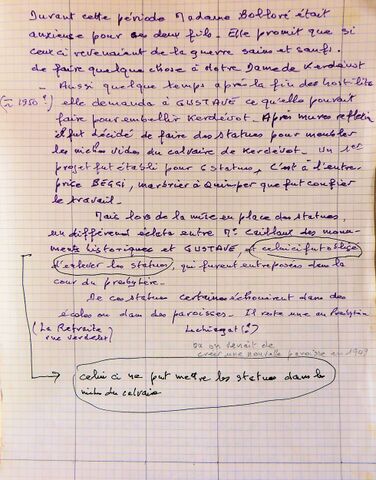 Durant cette période Madame Bolloré était
anxieuse pour ses deux fils. Elle promit que si
ceux ci revenaient de la guerre sains et saufs.
de faire quelque chose à Notre Dame de Kerdévot
- Aussi quelque temps après la fin des hostilités
(en 1950?) elle demanda à GUSTAVE ce qu'elle pouvait
faire pour embellir Kerdévot. Après mures reflexion
il fut décidé de faire des statues pour meubler
les niches vides du calvaire de Kerdévot. Un 1er
projet fut établi pour 6 statues, c'est à l'entre
prise BEGGI, marbrier à Quimper que fut confier
le travail.
Mais lors de la mise en place des statues,
un différend éclata entre Mr Caillaux des monu
ments historiques et GUSTAVE, et celui ci fut obligé
d'enlever les statues, qui furent entreposées dans la
cour du presbytère.
De ces statues certaines échouèrent dans des
écoles ou dans des paroisses. Il reste une au Presbytère
(La Retraite Lechiagat(?)
rue Verdelet)
où on venait de
créer une nouvelle paroisse en 1949
celui ci ne put mettre les statues dans les
niches du calvaire